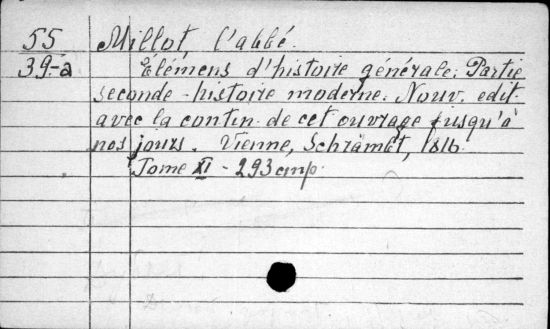 55 Millot, l'abbé.
39-a Elémens d'histoire générale. Partie
seconde - histoire moderne. Nouv. edit.
avec la contin. de cet ouvrage jusqu'à
nos jours. Vienne, Schrämbt, 1816.
Tome XI - 293 стр.